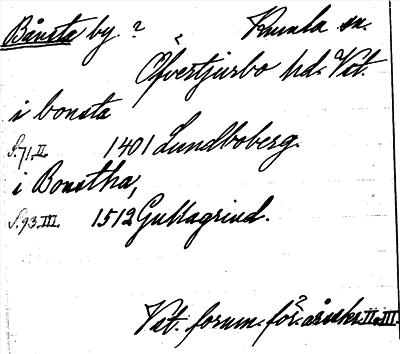 Bånsta by. ? Kumla sn.
Öfvertjurbo hd. Vst.
i bonsta
S. 71. II. 1401 Lundboberg.
i Bonstha,
S. 93. III. 1512 Gullagrind.
Vst. fornm. för. årsskr. II. III.